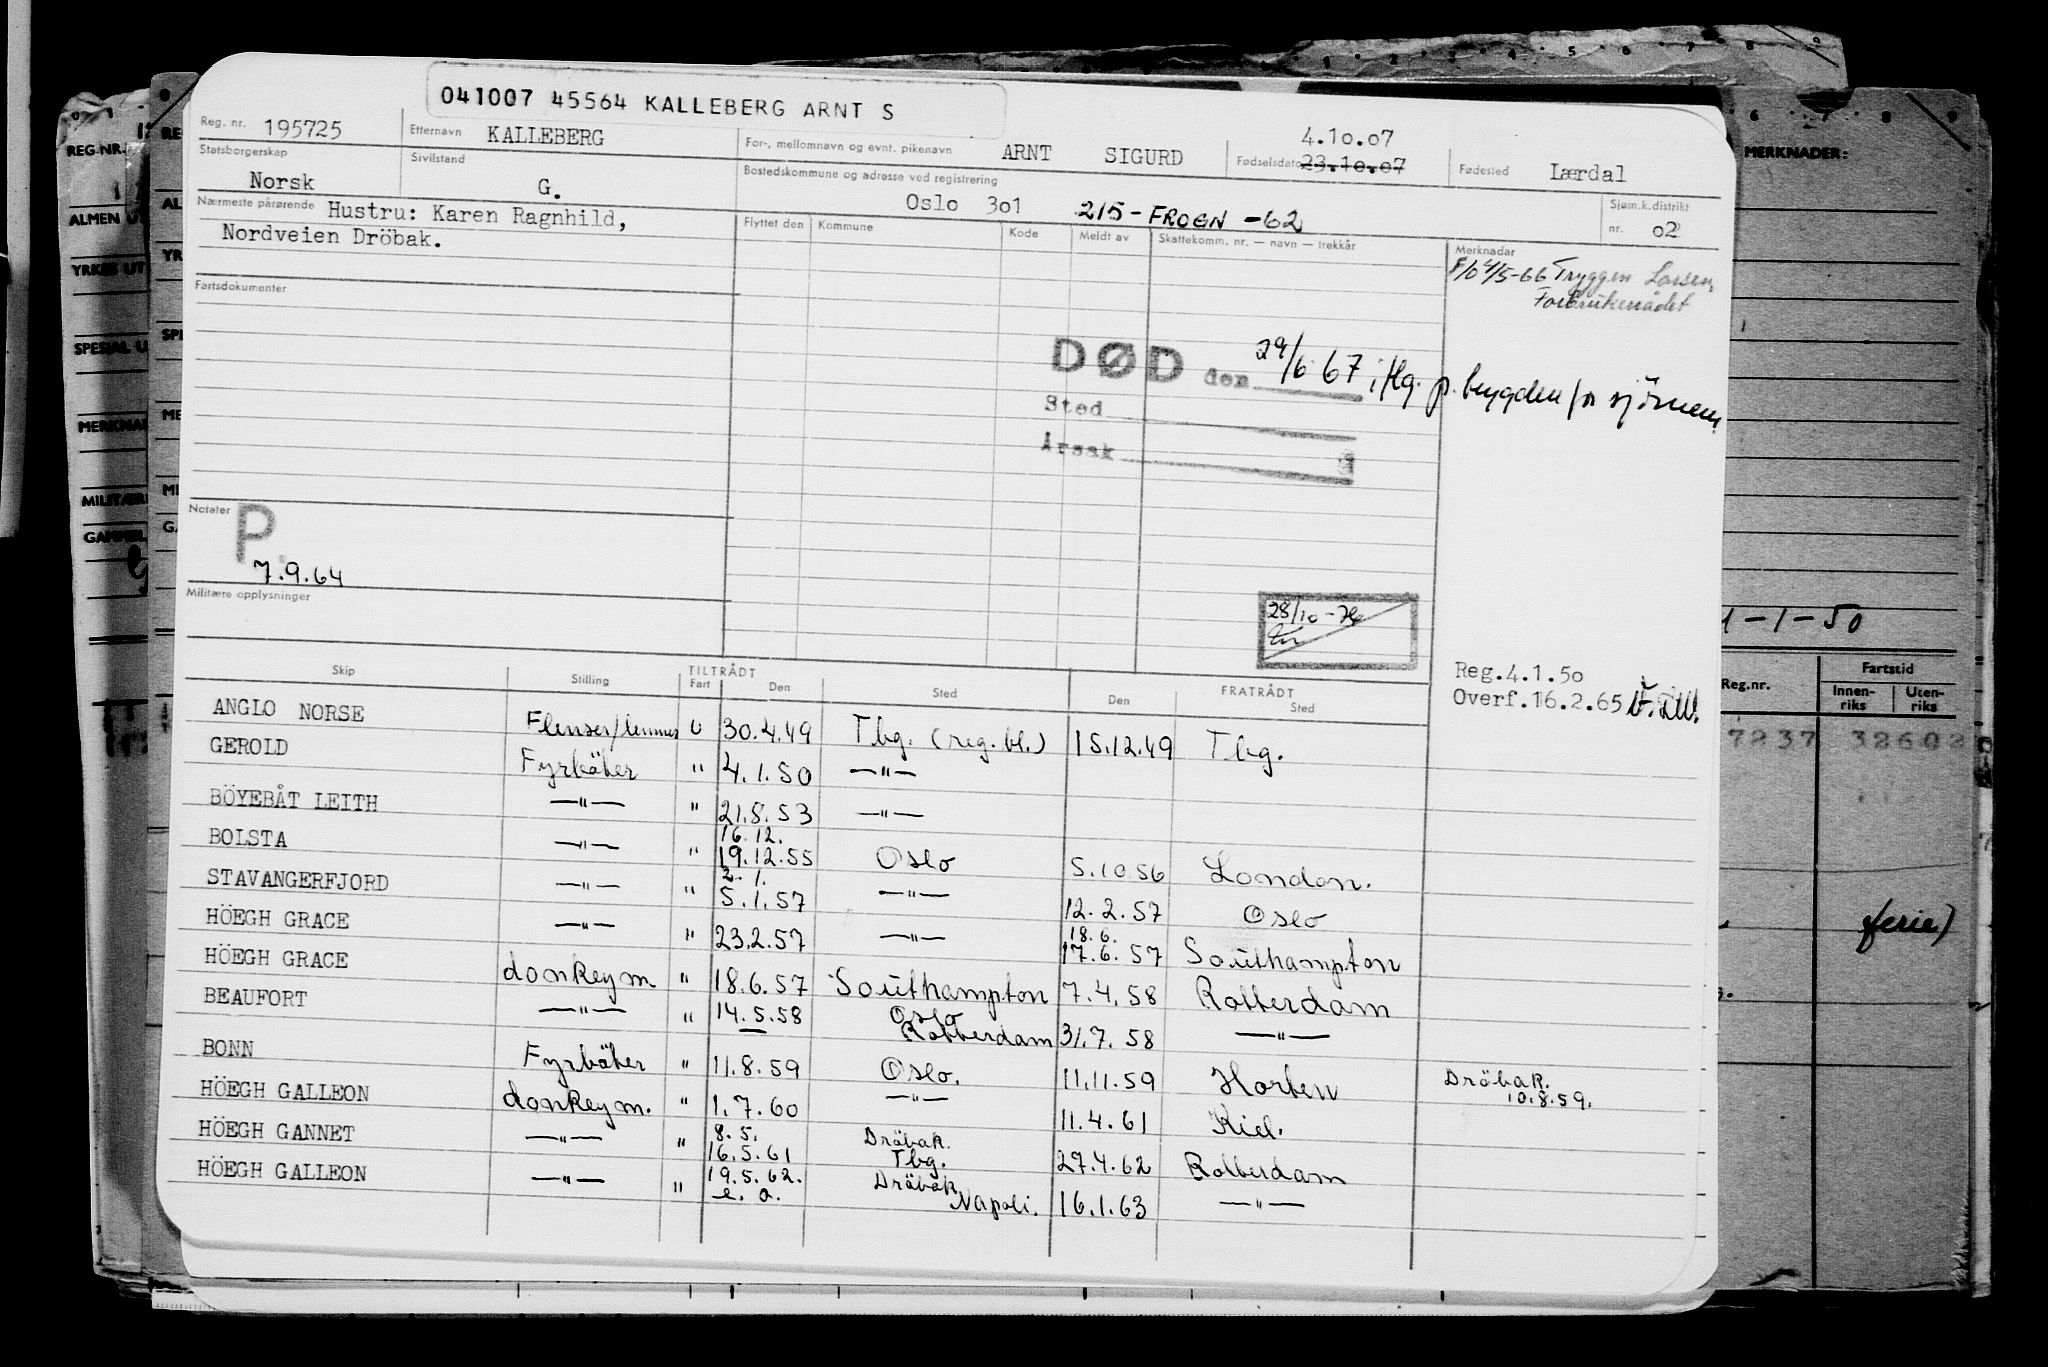 041007 45564 KALLEBERG ARNT S
Reg. nr. 195725 Etternavn KALLEBERG For-, mellomnavn og evnt. pikenavn ARNT SIGURD Fødselsdato 4.10.07 23.10.07 Fødested Lærdal
Statsborgerskap Norsk Sivilstand G. Bostedskommune og adresse ved registrering Oslo 301 215-FROGN-62 Sjøm.k.distrikt nr. 02
Nærmeste pårørende Hustru: Karen Ragnhild,
Nordveien Dröbak.
Flyttet den Kommune Kode Meldt av Skattekomm. nr. — navn — trekkår Merknader
4/5-66 Tryggen Larsen,
Forbrukerrådet
Fartsdokumenter
DØD den 29/6 67 i flg. p.
Sted
Årsak
Notater P.
7.9.64
Militære opplysninger
28/10-76
Reg.4.1.50
Overf.16.2.65
Skip Stilling TILTRÅDT Fart Den Sted FRATRÅDT Den Sted
ANGLO NORSE U 30.4.49 Tbg. (reg.bl.) 15.12.49 Tbg.
GEROLD Fyrböter " 4.1.50 —"—
BÖYEBÅT LEITH —"— " 21.8.53 —"—
BOLSTA —"— " 16.12. 19.12.55 Oslo 5.10.56 London.
STAVANGERFJORD —"— " 2.1. 5.1.57 —"— 12.2.57 Oslo
HÖEGH GRACE —"— " 23.2.57 —"— 18.6. 17.6.57 Southampton
HÖEGH GRACE donkeym. " 18.6.57 Southampton 7.4.58 Rotterdam
BEAUFORT —"— " 14.5.58 Oslo Rotterdam 31.7.58 —"—
BONN Fyrböter " 11.8.59 Oslo. 11.11.59 Horten Dröbak. 10.8.59.
HÖEGH GALLEON donkeym. " 1.7.60 —"— 11.4.61 Kiel.
HÖEGH GANNET —"— " 8.5. 16.5.61 Dröbak. Tbg. 27.4.62 Rotterdam
HÖEGH GALLEON —"— " 19.5.62. e.a. Dröbak Napoli. 16.1.63 —"—
REG.NR.
ALMEN U
YRKES UT
SPESIAL U
MERKNA
MILITÆR
GAMMEL
MERKNADER:
1-1-50
Reg.nr. Fartstid
Innen-riks Uten-riks
7237 32602
ferie)